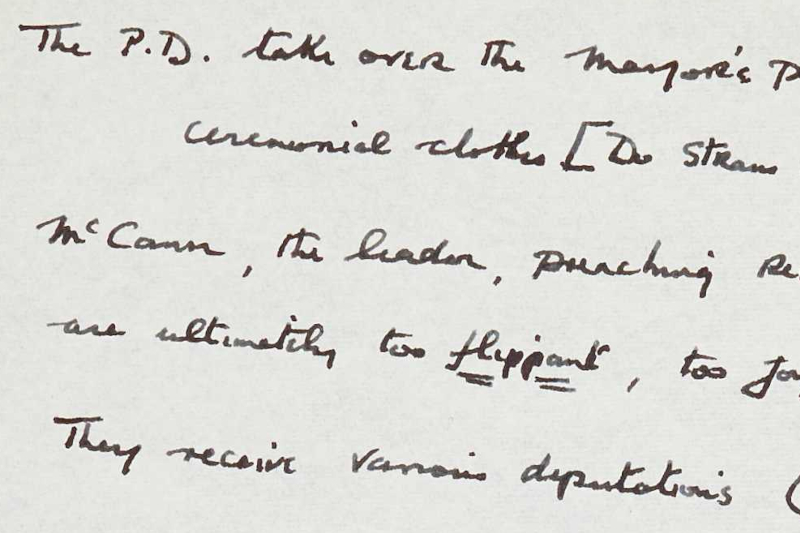 The P.D. take over the Mayor's P
ceremonial clothes [Do Straw
McCann, the leader, preaching Re
are ultimately too flippant, too
They receive various deputations (